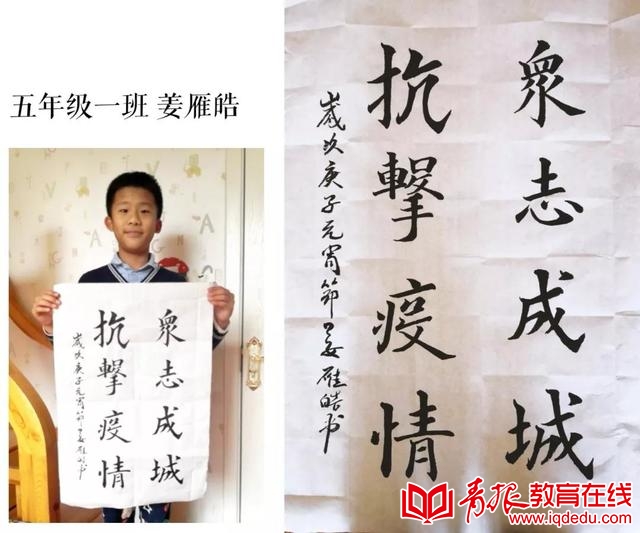 五年级一班 姜雁皓
眾志成城
抗擊疫情
歲次庚子元宵節姜雁皓书
眾志成城
抗擊疫情
歲次庚子元宵節姜雁皓书
青报教育在线
www.iqdedu.com